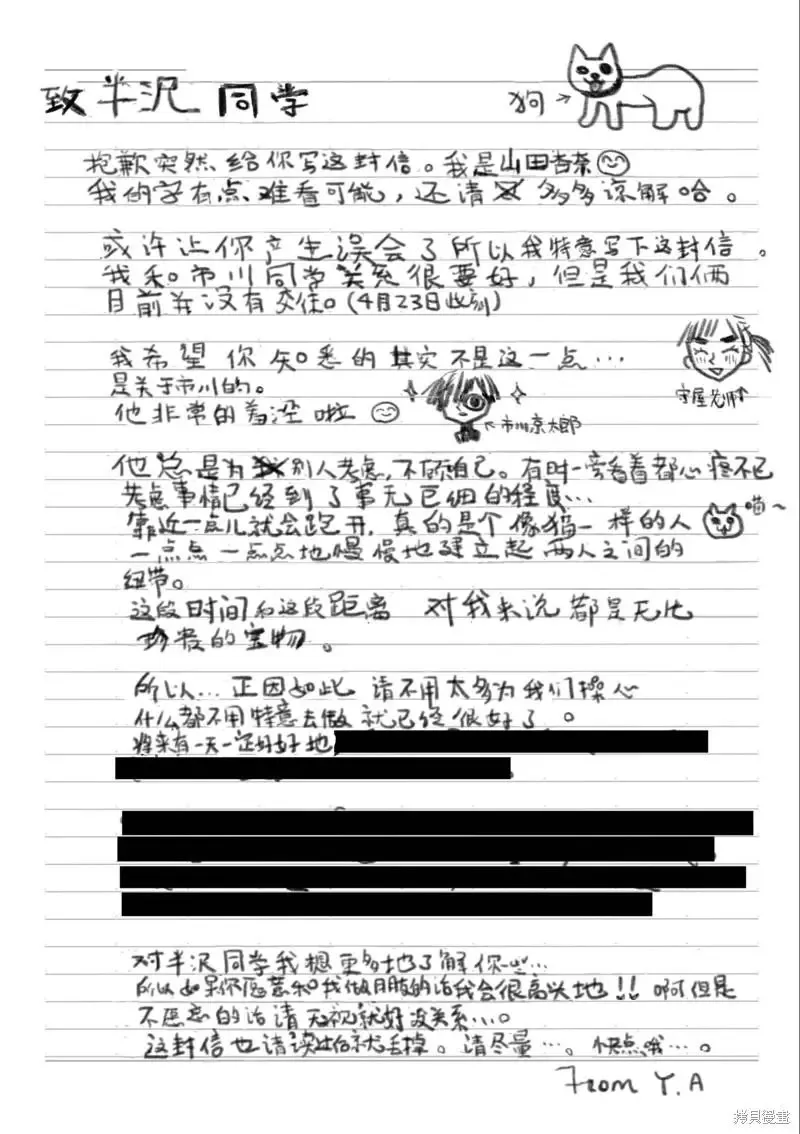 致半沢同学
狗
抱歉突然给你写这封信。我是山田杏奈
我的字有点难看可能，还请多多谅解哈。
或许让你产生误会了所以我特意写下这封信。
我和市川同学关系很要好，但是我们俩
目前并没有交往。(4月23日此刻)
我希望你知悉的其实不是这一点…
是关于市川的。
他非常的羞涩啦
守屋老师↑
←市川京太郎
他总是为别人考虑，不顾自己。有时一旁看着都心疼不已
考虑事情已经到了事无巨细的程度…
靠近一点儿就会跑开，真的是个像猫一样的人
喵～
一点点一点点地慢慢地建立起两人之间的
纽带。
这段时间和这段距离 对我来说都是无比
珍贵的宝物。
所以…正因如此 请不用太多为我们操心
什么都不用特意去做就已经很好了。
将来有一天一定好好地
对半沢同学我想更多地了解你一些…
所以如果你愿意和我做朋友的话我会很高兴地!! 啊但是
不愿意的话请无视就好没关系…。
这封信也请读完后就丢掉。请尽量…。快点哦…。
From Y.A
拷貝漫畫